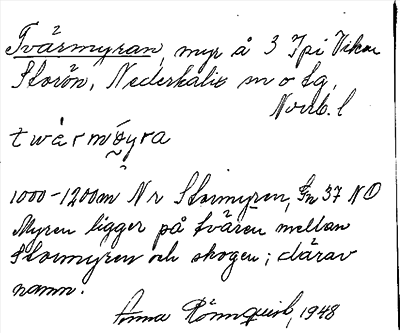 Tvärmyran, myr å 3 J på Vikar
Storön, Nederkalix m o tg,
Norrb. l
twärmøyra
1000-1200 m N r Stormyren, Ln 37 NO
Myren ligger på tvären mellan
Stormyren och skogen; därav
namn.
Anna Rönnquist, 1948